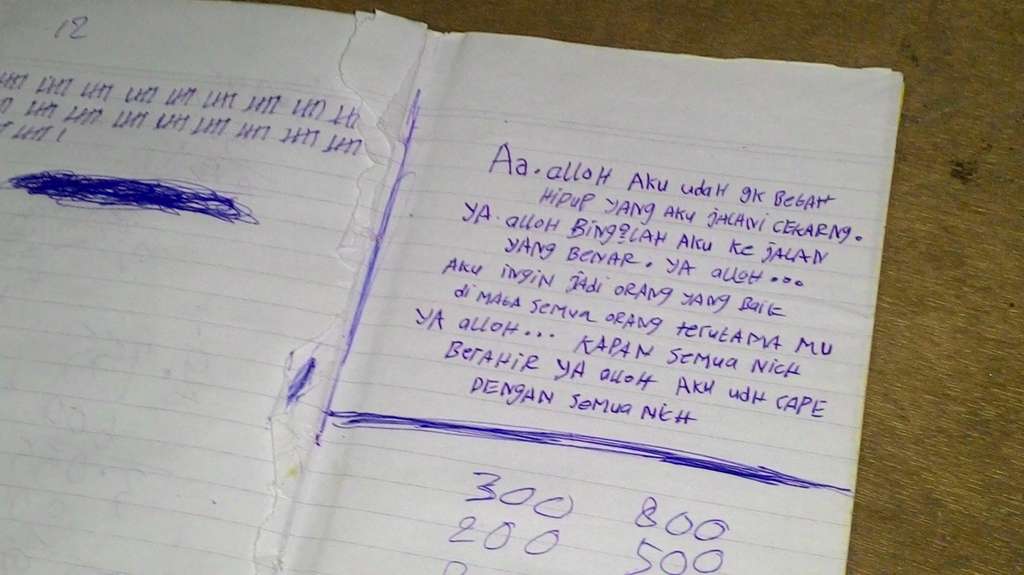 12
Aa. alloH AKU udaH gk BetaH
HiDuP YANG AKU JALANI CEKARNG.
YA. alloH Bing?LAH AKU KE JALAN
YANG BENAR. YA alloH...
AKU ingin jadi ORANG YANG BaiK
di MATA SEMUA ORANG terutAMA MU
YA alloH... KAPAN SEMUA NicH
BerAHiR YA alloH AKU udH CAPE
DENGAN SEMUA NicH
300 800
200 500